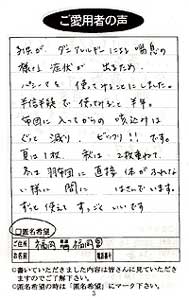 ご愛用者の声
子供が、ダニアレルギーによる喘息の
様な症状が出るため、
パシーマを使ってみることにしました。
半信半疑で使ってみると半年。
布団に入ってからの咳込みは
ぐっと減り、ビックリ!!です。
夏は1枚、秋は2枚重ねて、
冬は羽布団に直接体がふれな
い様に間にはさんでいます。
ずっと使えてすっごくいいです
□匿名希望
住所
福岡
県
福岡
氏名
電話
◎書いていただきました内容は皆さんに見ていただき
ますのでご了解下さい。
◎匿名希望の時は「匿名希望」にマーク下さい。
3